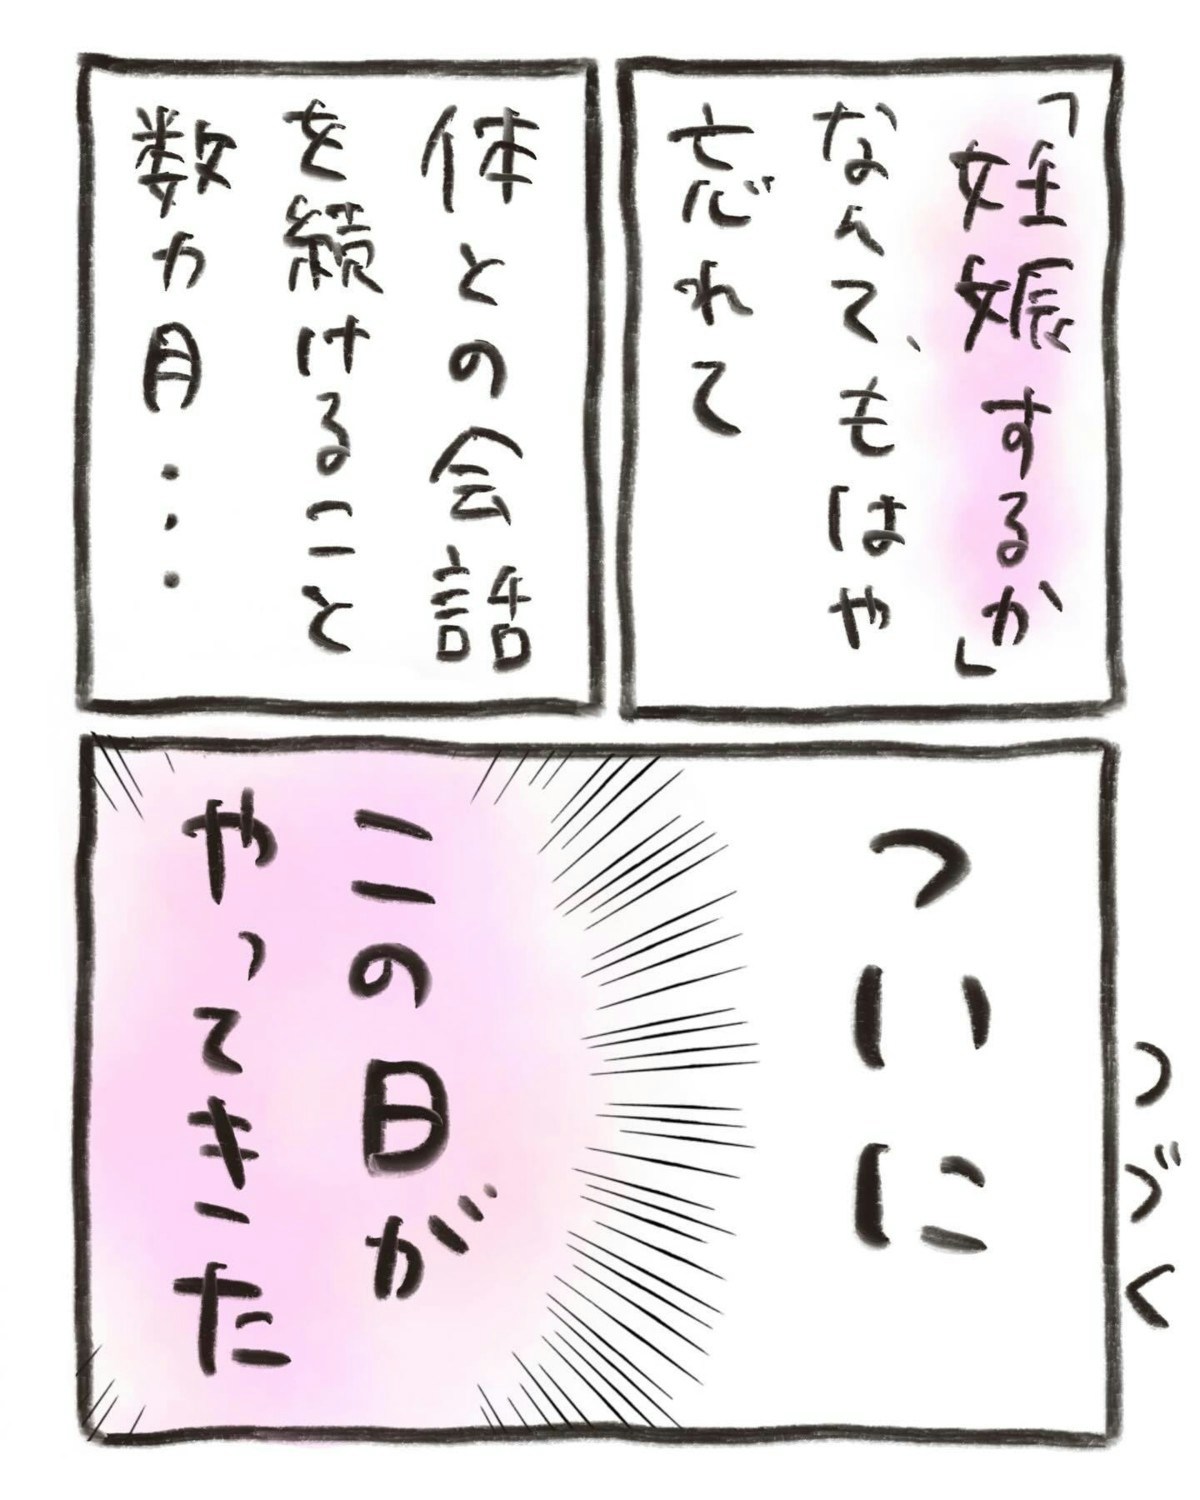 「妊娠するか」
なんて、もはや
忘れて
体との会話
を続けること
数カ月…
ついに
この日が
やってきた
つづく